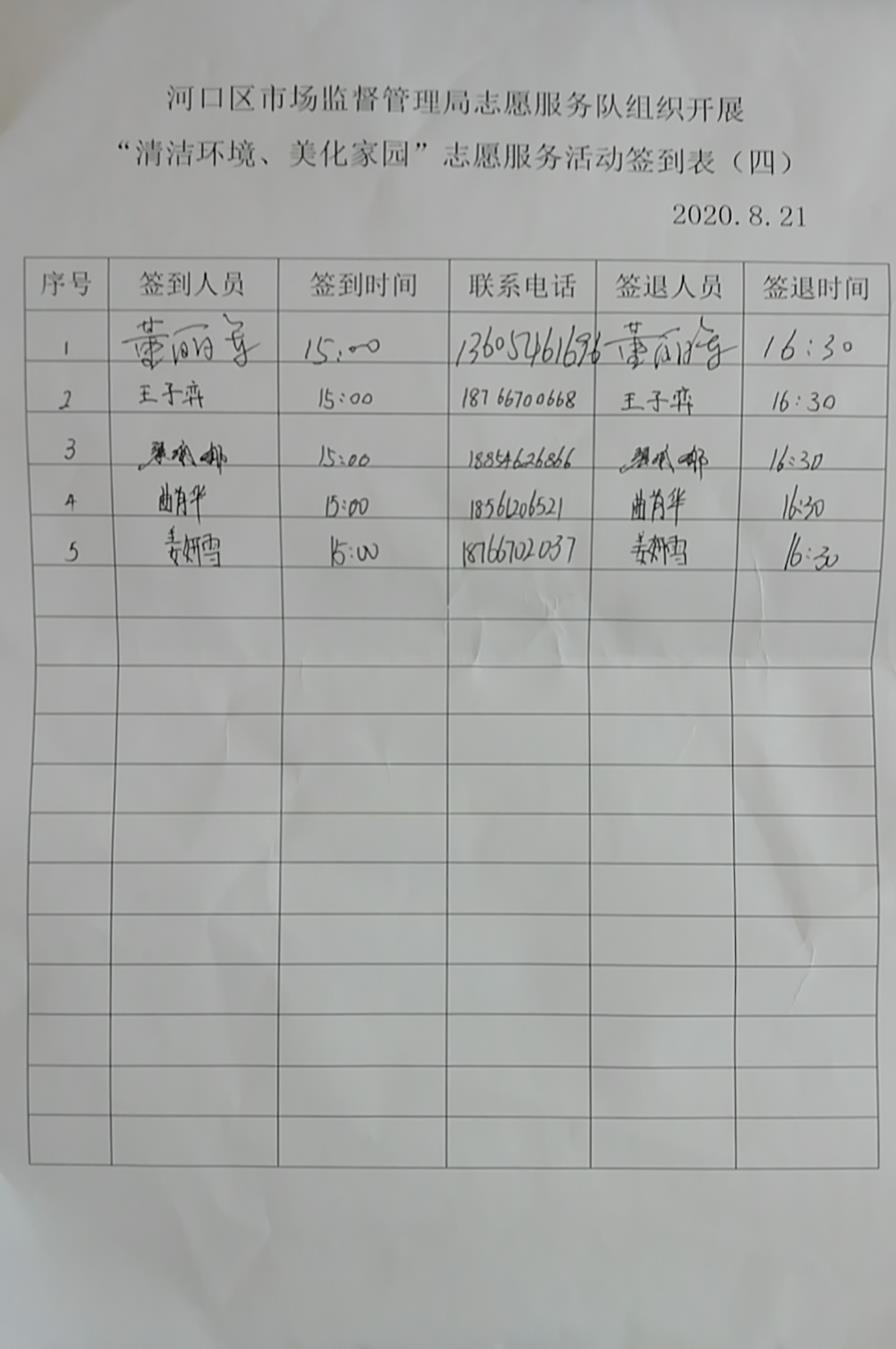 河口区市场监督管理局志愿服务队组织开展
“清洁环境、美化家园”志愿服务活动签到表（四）
2020.8.21
序号 签到人员 签到时间 联系电话 签退人员 签退时间
1 15:00 13605461696 16:30
2 王子弈 15:00 18766700668 王子弈 16:30
3 15:00 18854626866 16:30
4 曲肖华 15:00 18561206521 曲肖华 16:30
5 姜妍雪 15:00 18766702037 姜妍雪 16:30